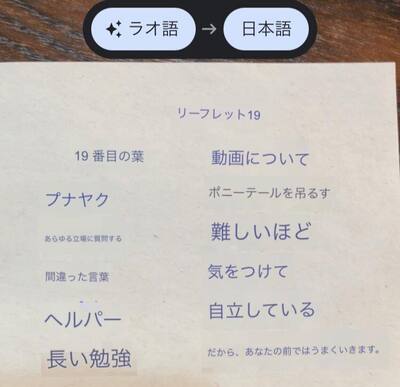 ラオ語 → 日本語
リーフレット19
19 番目の葉
プナヤク
あらゆる立場に質問する
間違った言葉
ヘルパー
長い勉強
動画について
ポニーテールを吊るす
難しいほど
気をつけて
自立している
だから、あなたの前ではうまくいきます。